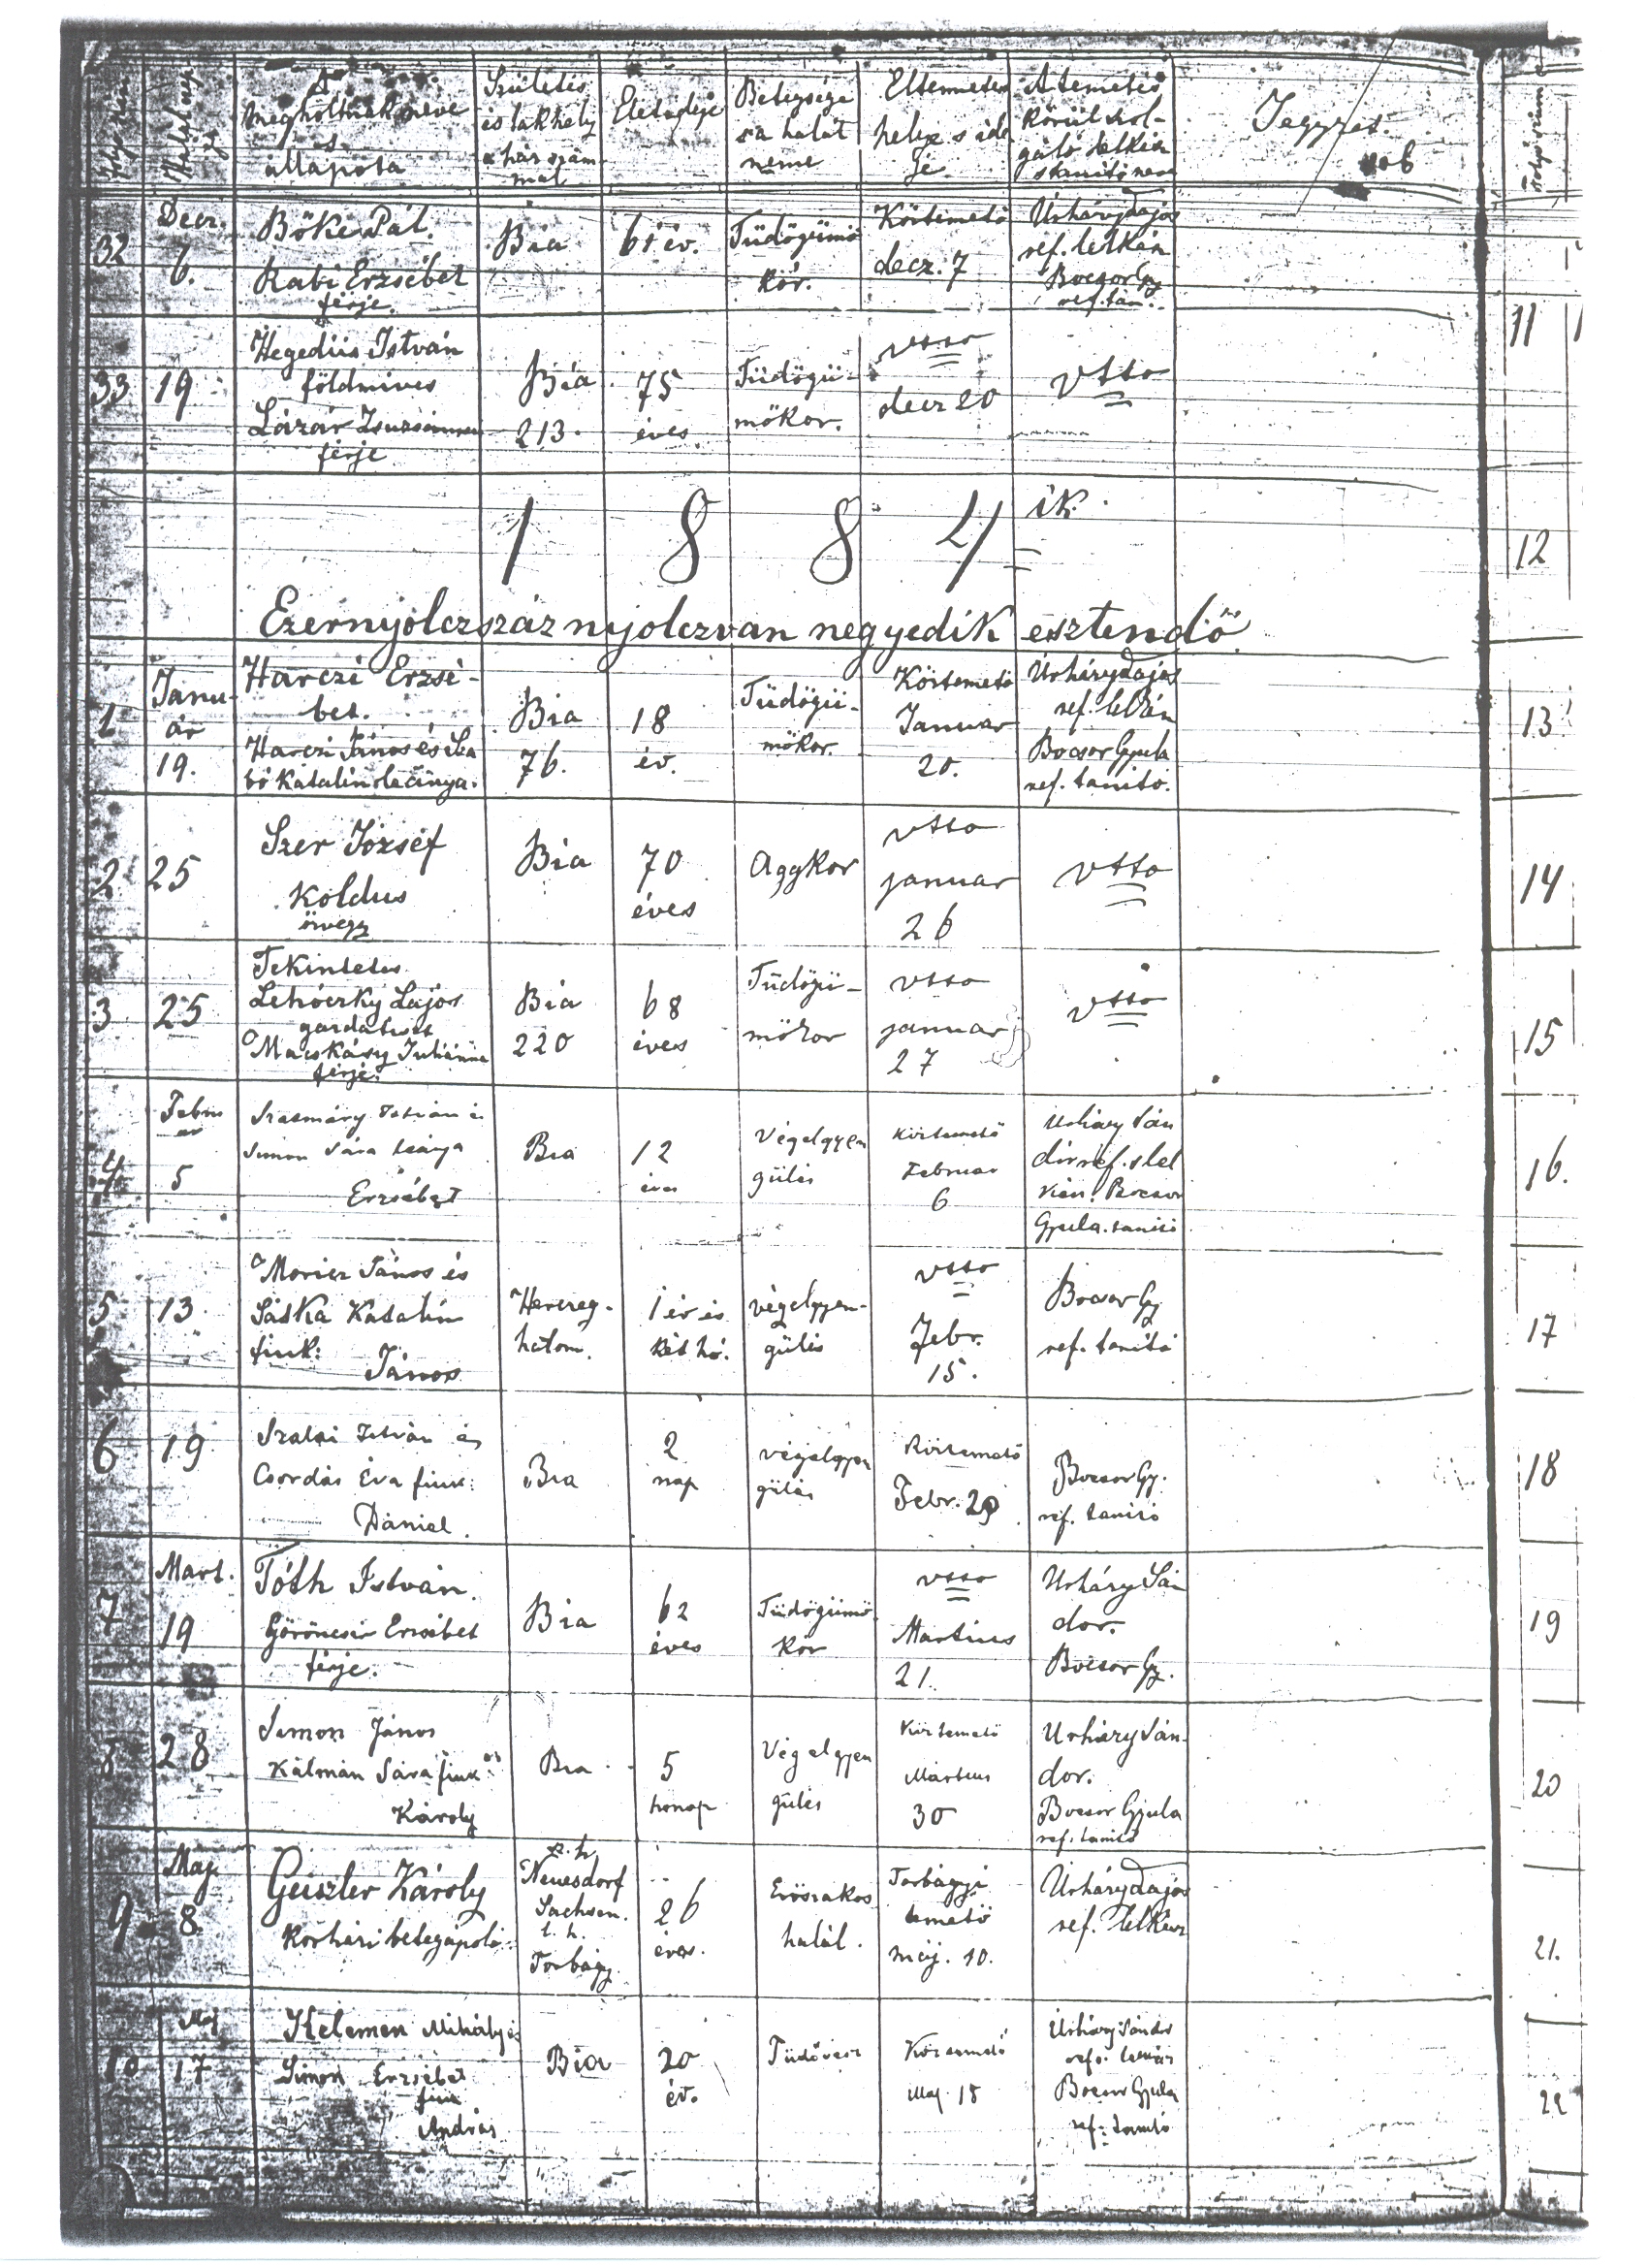 Folyó szám
Halál nap-
ja
A
megholtnak neve
s
állapota
Születés
és lakhely
a ház szám-
mal
Életideje
Betegsége
s a halál
neme
Eltemetés
helye s ide
je
A temetés
körül szol-
gáló lelkész
s tanító neve
Jegyzet.
32
Decz.
6.
Bőke Pál.
Rabi Erzsébet
férje.
Bia
61 év.
Tüdőgümő
kór.
Köztemető
decz. 7
Úrháry Lajos
ref. lelkész
Bocsor Gy
ref. tan.
33
19
Hegedüs István
földmíves
Lázár Zsuzsánna
férje
Bia
213.
75
éves.
Tüdőgü-
mőkor.
vtto
decz 20
vtto
11
1 8 8 4 ik.
12
Ezernyolczszáznyolczvan negyedik esztendő
1
Janu-
ár
19.
Harczi Erzsé-
bet.
Harczi János és Sza
bó Katalin leánya.
Bia
76.
18
év.
Tüdőgü-
mőkor.
Köztemető
Januar
20.
Úrháry Lajos
ref. lelkész
Bocsor Gyula
ref. tanító.
13
2
25
Szer József
Koldus
özvegy
Bia
70
éves
Aggkor
vtto
januar
26
vtto
14
3
25
Tekintetes
Lehóczky Lajos
gazdatiszt
Macskásy Juliánna
férje.
Bia
220
68
éves
Tüdőgü-
mőkor
vtto
januar
27
vtto
15
4
Febru
ar
5
Szatmáry István és
Simon Sára leánya
Erzsébet
Bia
12
éves
Végelgyen
gülés
Köztemető
Februar
6
Urháry Sán
dor ref. s lel
kész. Bocsor
Gyula. tanító
16.
5
13
Moricz János és
Sáska Katalin
fiuk:
János
Herczeg-
halom.
1 év és
két hó.
végelgyen-
gülés
vtto
Febr.
15.
Bocsor Gy
ref. tanító
17
6
19
Szalai István és
Csordás Éva fiuk:
Dániel.
Bia
2
nap
végelgyen
gülés
Köztemető
Febr. 20
Bocsor Gy.
ref. tanító
18
7
Mart.
19
Tóth István.
Göröncsér Erzsébet
férje.
Bia
62
éves
Tüdőgümő
kór
vtto
Martius
21.
Urháry Sán
dor.
Bocsor Gy.
19
8
28
Simon János
Kálmán Sára fiuk
Károly
Bia
5
honap
Végelgyen
gülés
Köztemető
Martius
30
Urháry Sán-
dor.
Bocsor Gyula
ref. tanító
20
9
Maj.
8
Geiszler Károly
Kórházi betegápoló
sz. h.
Neuesdorf
Sachsen.
l. h.
Torbágy.
26
éves.
Erőszakos
halál.
Torbágyi
temető
máj. 10.
Úrháry Lajos
ref. lelkész
21.
10
Maj
17
Kelemen Mihály és
Simon Erzsébet
fiuk
András
Bia
20
év.
Tüdővész
Köztemető
Maj 18
Urháry Sándor
ref. lelkész
Bocsor Gyula
ref. tanító
22